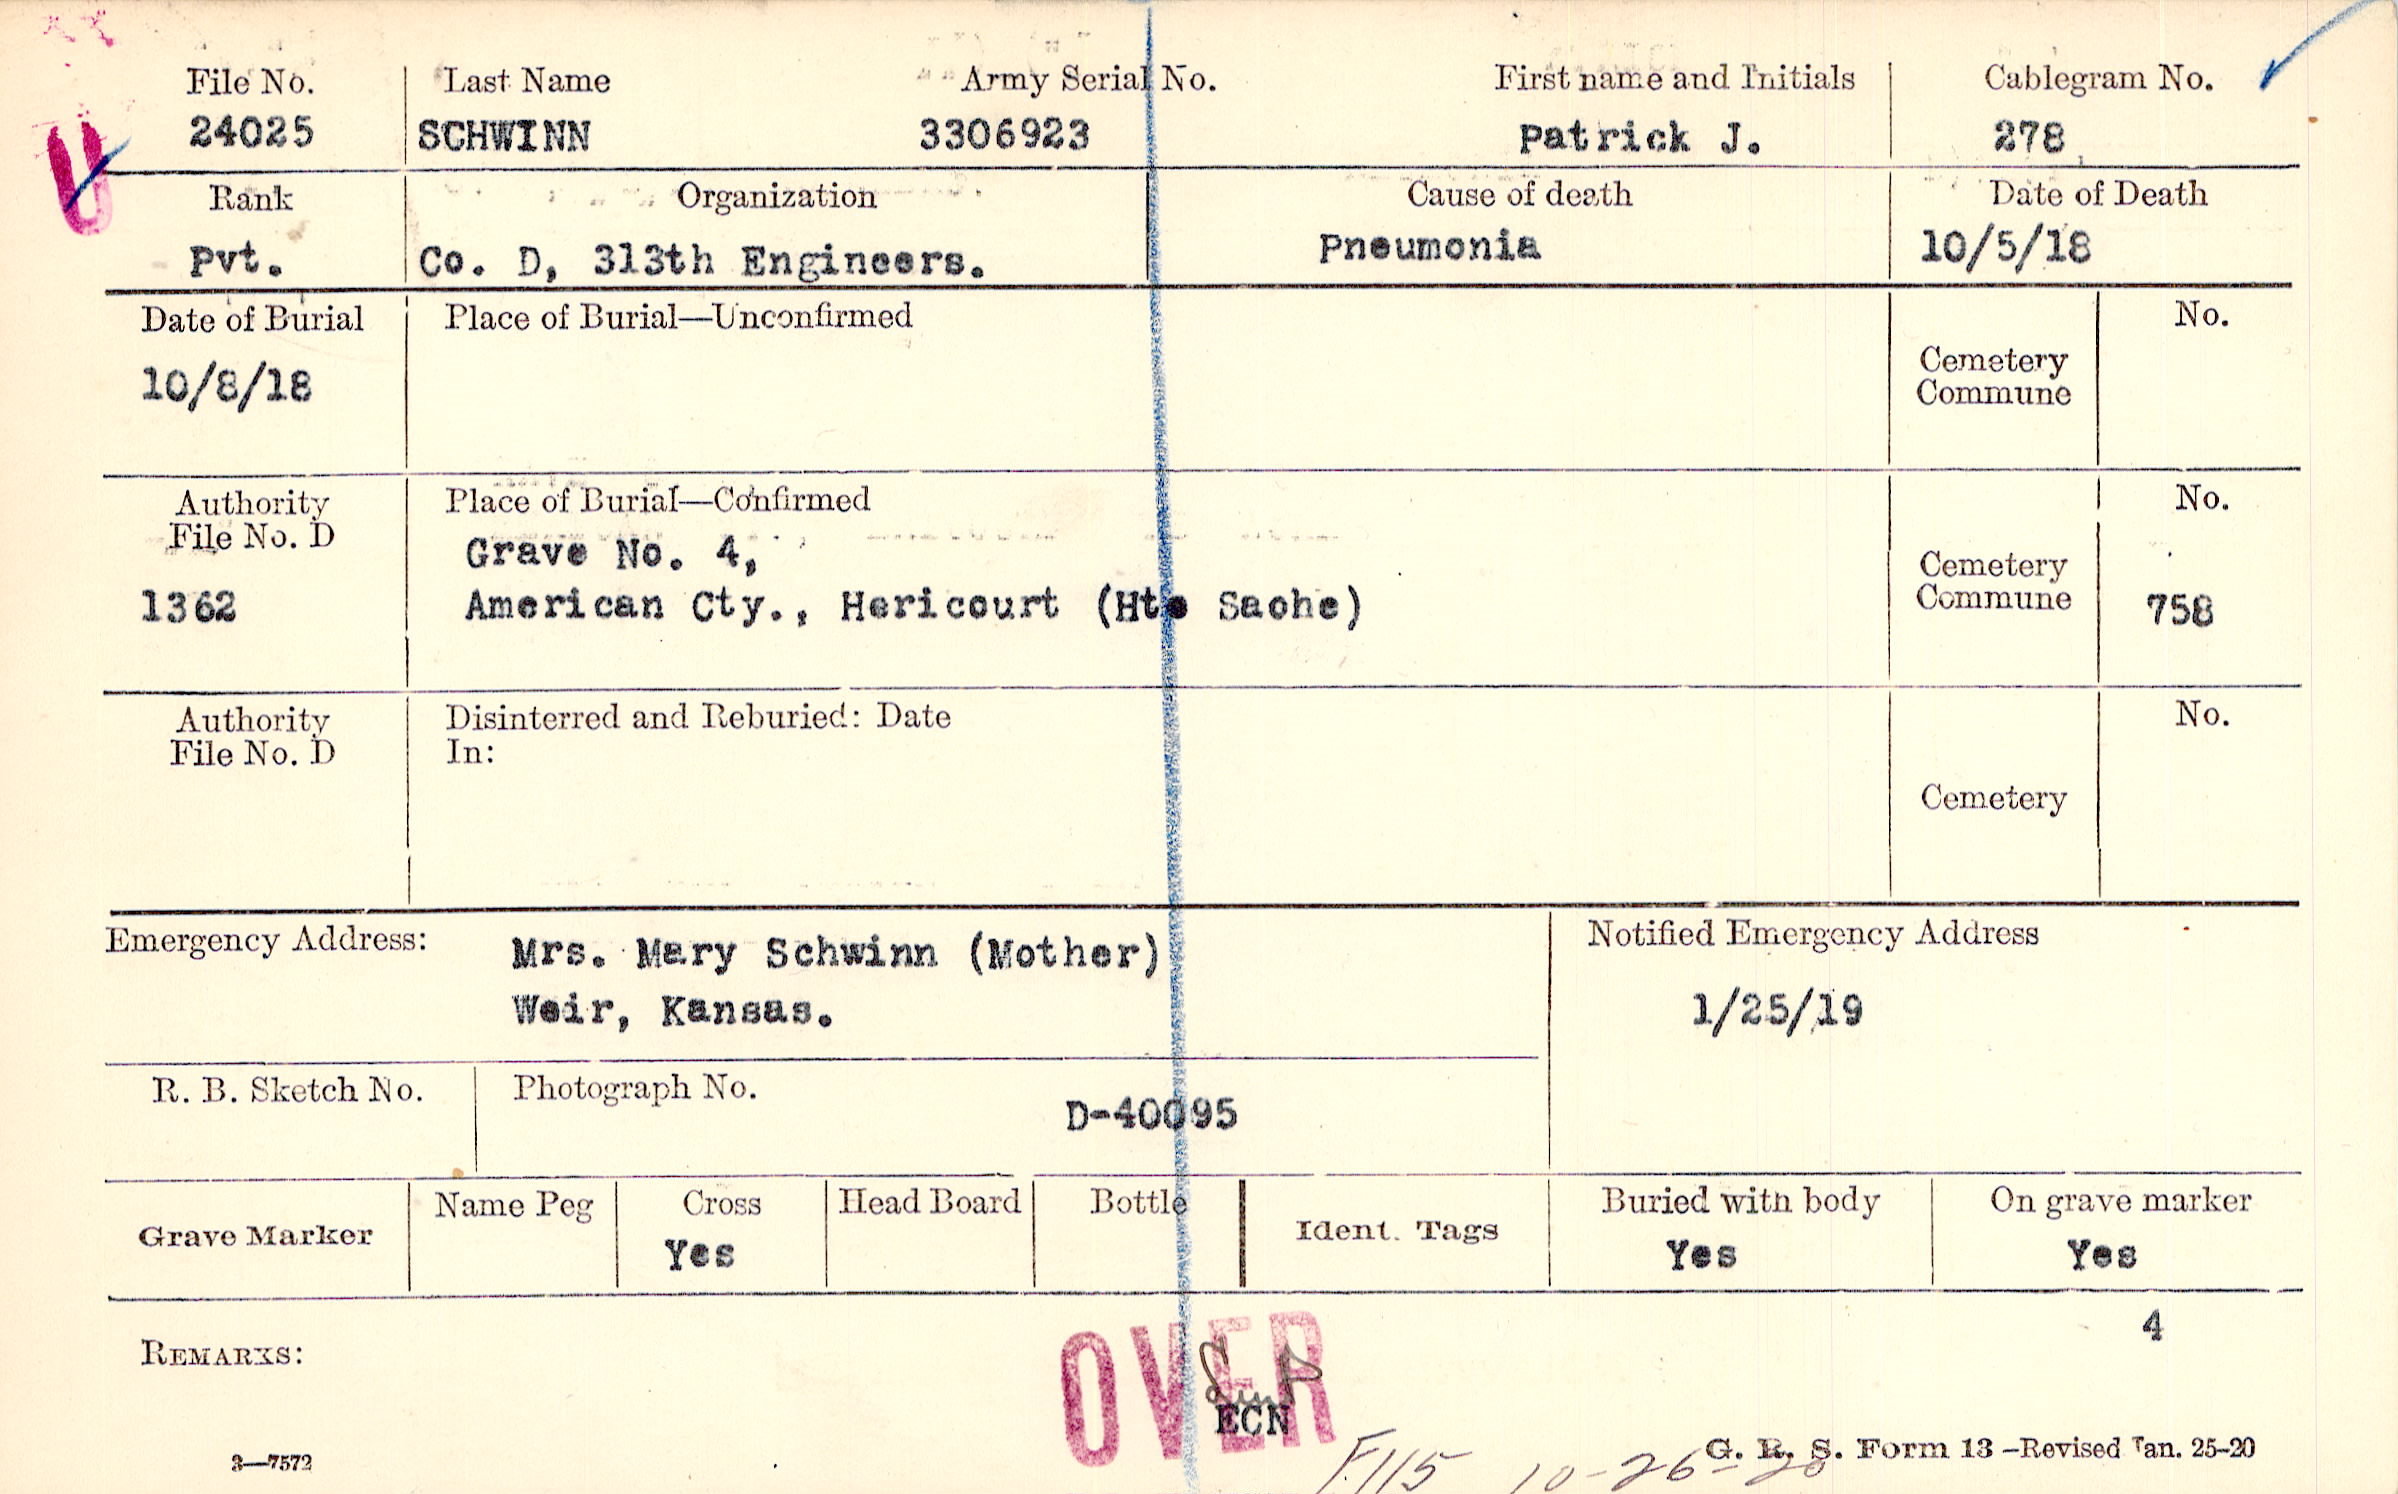 File No. Last Name Army Serial No. First name and Initials Cablegram No.
24025 SCHWINN 3306923 Patrick J. 278
U
Rank Organization Cause of death Date of Death
Pvt. Co. D, 313th Engineers. Pneumonia 10/5/18
Date of Burial Place of Burial—Unconfirmed No.
10/8/18 Cemetery
Commune
Authority Place of Burial—Confirmed No.
File No. D Grave No. 4, Cemetery
1362 American Cty., Hericourt (Hte Saohe) Commune 758
Authority Disinterred and Reburied: Date No.
File No. D In:
Cemetery
Emergency Address: Mrs. Mary Schwinn (Mother) Notified Emergency Address
Weir, Kansas. 1/25/19
R. B. Sketch No. Photograph No.
D-40095
Grave Marker Name Peg Cross Head Board Bottle Ident. Tags Buried with body On grave marker
Yes Yes Yes
4
REMARKS:
OVER
ECN
3—7572 G. R. S. Form 13—Revised Jan. 25-20
F115 10-26-20